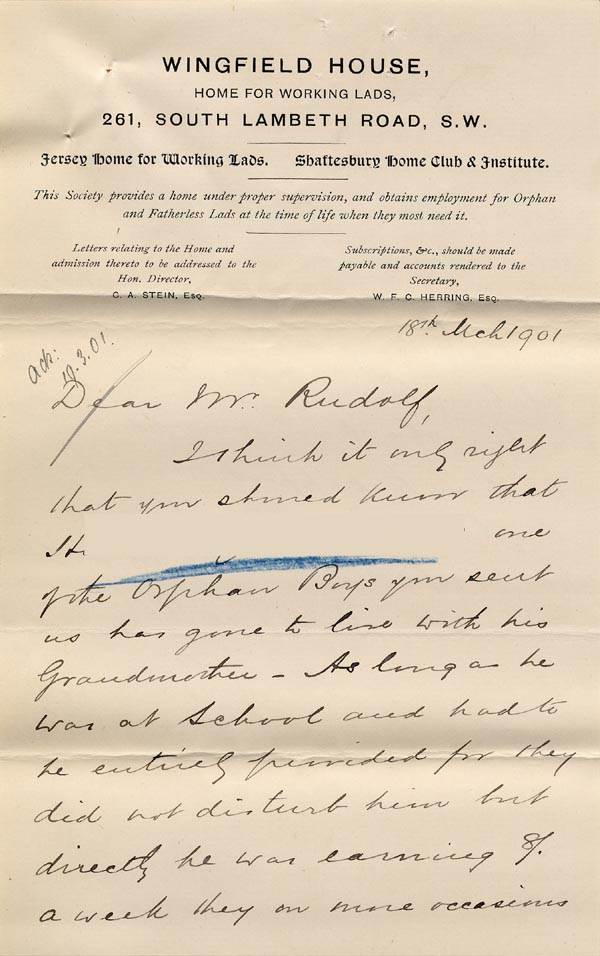 WINGFIELD HOUSE,
HOME FOR WORKING LADS,
261, SOUTH LAMBETH ROAD, S.W.
Jersey Home for Working Lads. Shaftesbury Home Club & Institute.
This Society provides a home under proper supervision, and obtains employment for Orphan
and Fatherless Lads at the time of life when they most need it.
Letters relating to the Home and
admission thereto to be addressed to the
Hon. Director,
C. A. STEIN, Esq.
Subscriptions, &c., should be made
payable and accounts rendered to the
Secretary,
W. F. C. HERRING, Esq.
18th Mch 1901
Ack:
19.3.01.
Dear Mr. Rudolf,
I think it only right
that you should know that
H. one
of the Orphan Boys you sent
us has gone to live with his
Grandmother - As long as he
was at School and had to
be entirely provided for they
did not disturb him but
directly he was earning 8/.
a week they on more occasions